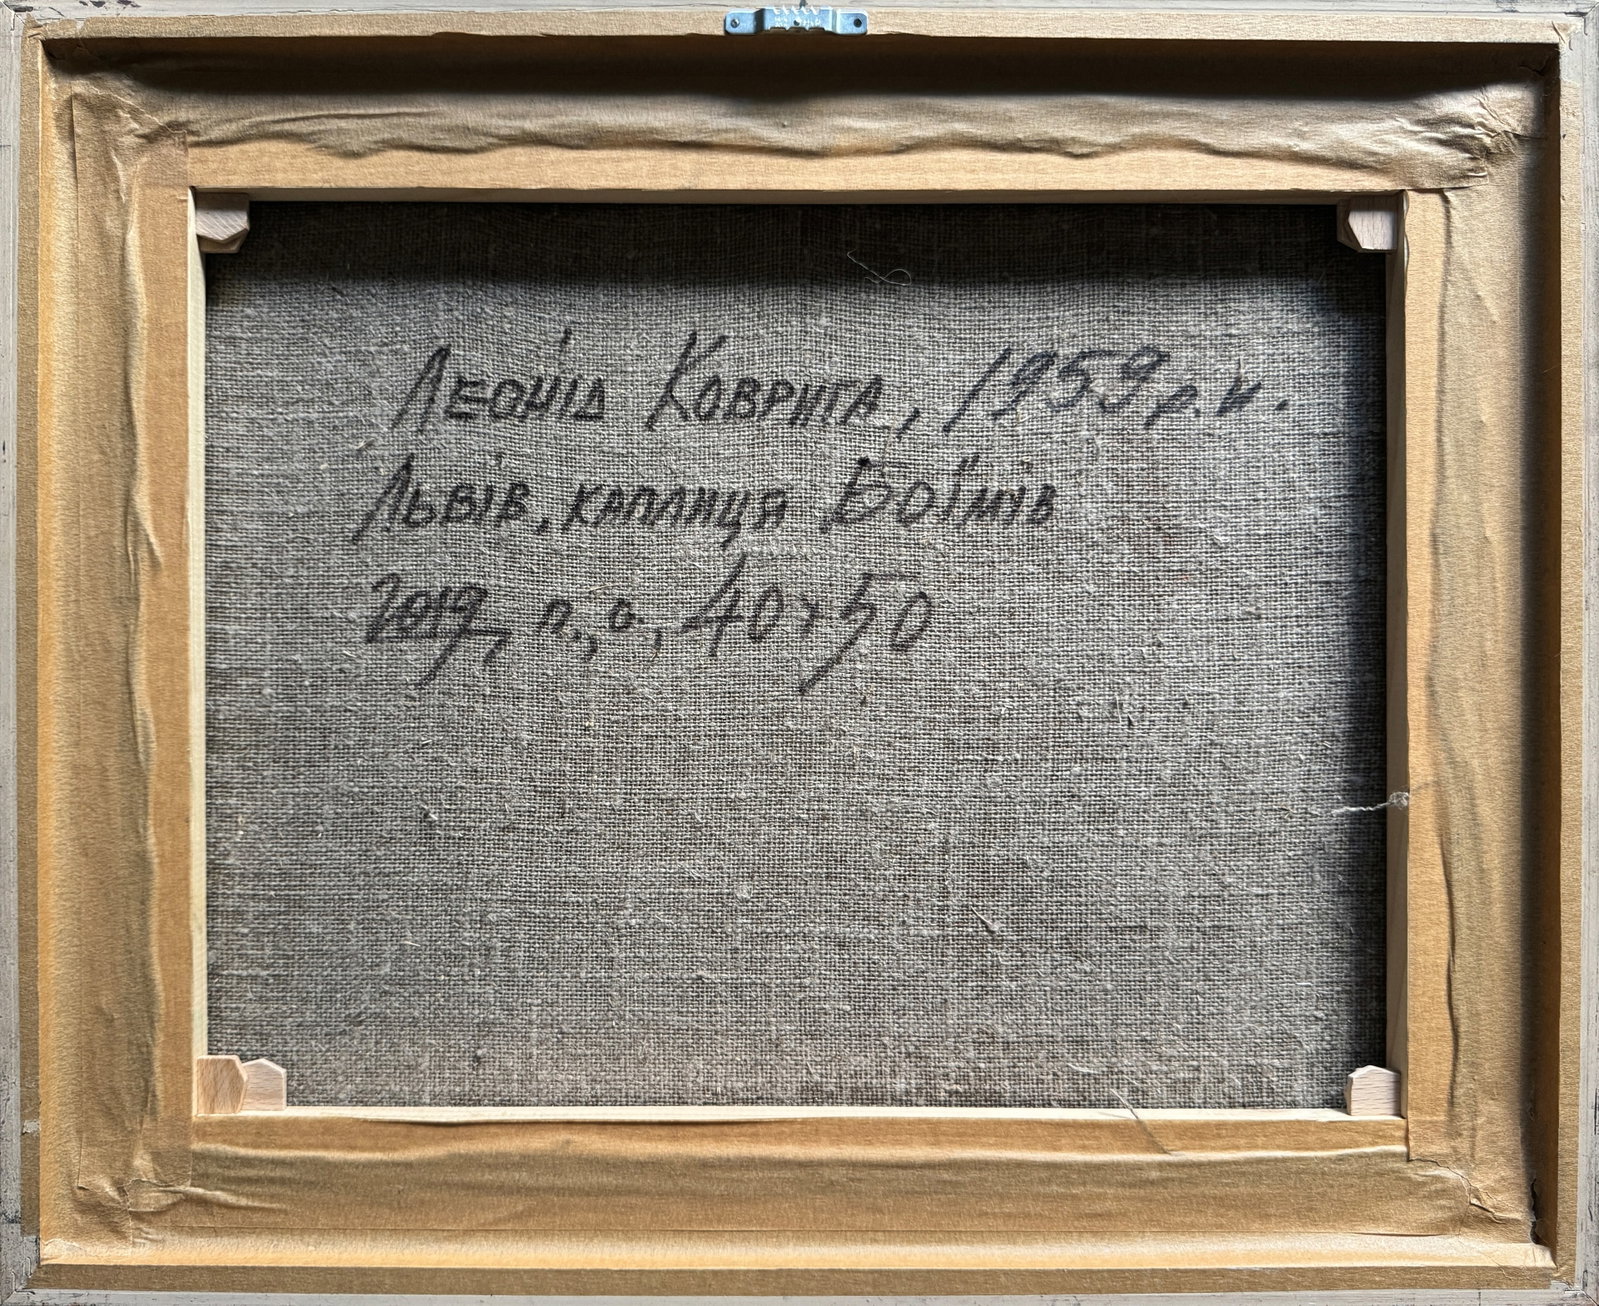 Леонід Коврига, 1959 р.н.
Львів, каплиця Боїмів
2019, п., о., 40х50